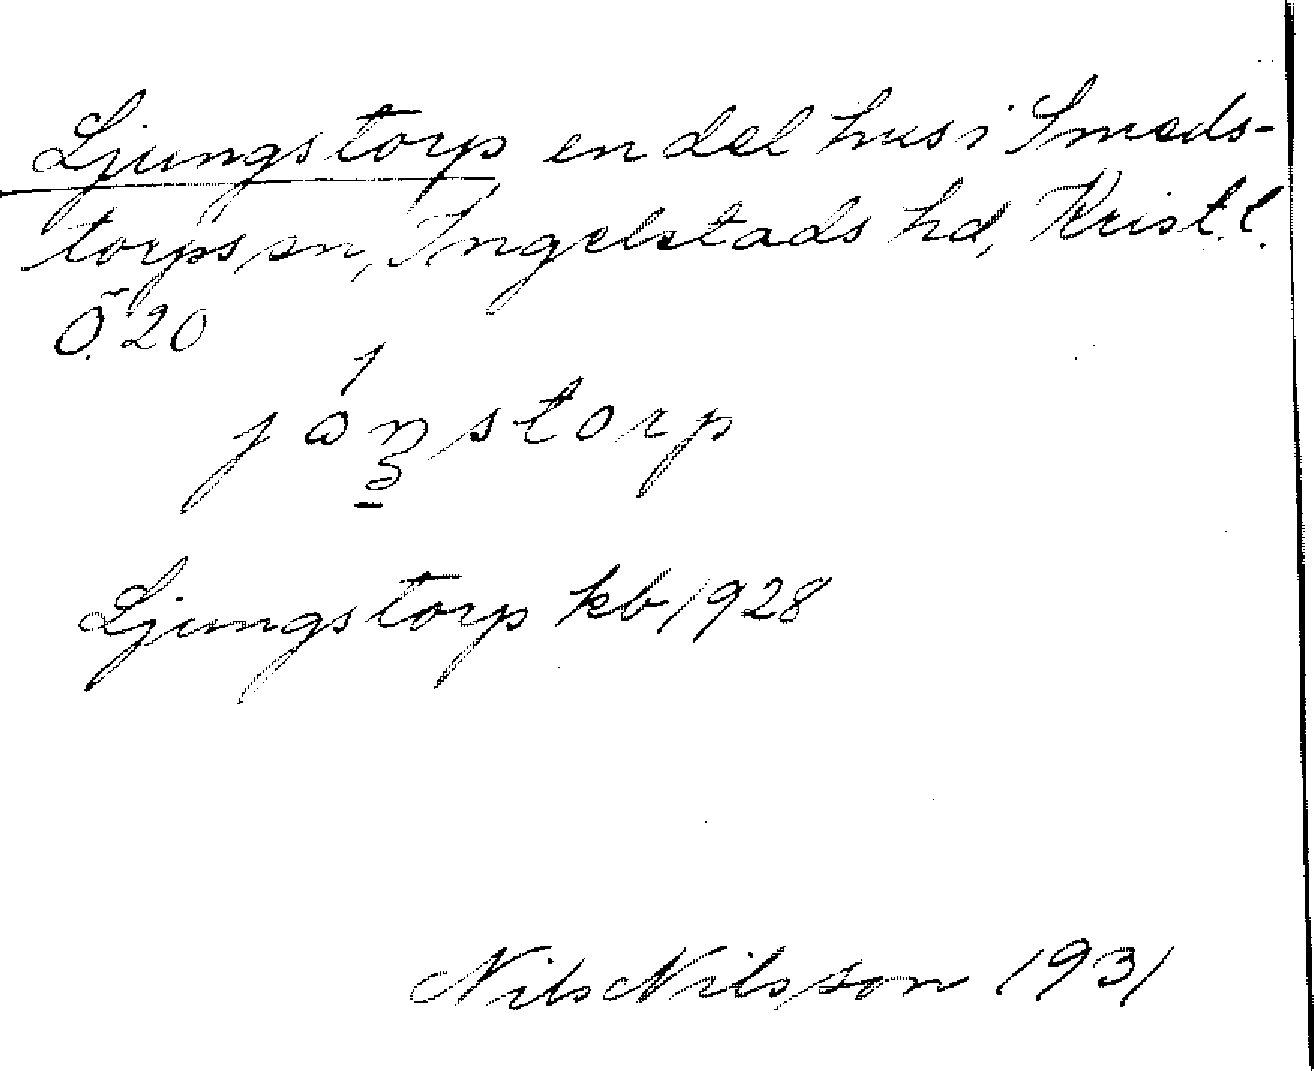 Ljungstorp en del hus i Smeds-
torps sn, Ingelstads hd, Krist. l.
Ö. 20
Ljungstorp kb 1928
Nils Nilsson 1931